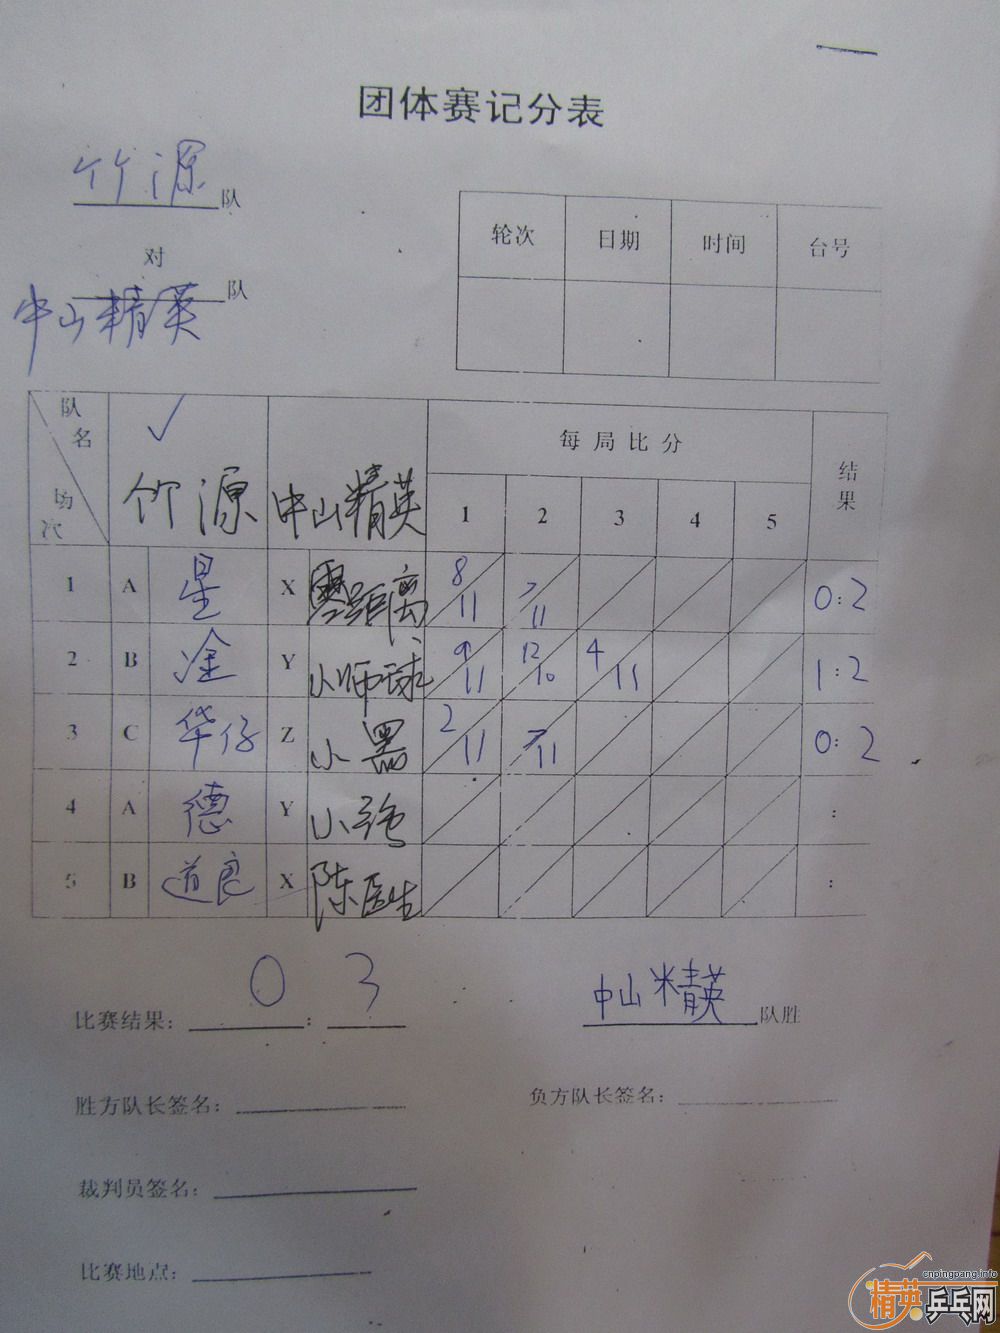 团体赛记分表
竹源队
对
中山精英队
轮次 日期 时间 台号
队名 场次 ✓ 竹源 中山精英 每局比分 结果
1 2 3 4 5
1 A 星 X 零距离 8/11 7/11 0:2
2 B 淦 Y 小师球 9/11 12/10 4/11 1:2
3 C 华仔 Z 小器 2/11 7/11 0:2
4 A 德 Y 小强 :
5 B 道良 X 陈医生 :
比赛结果: 0 : 3 中山精英队胜
胜方队长签名: 负方队长签名:
裁判员签名:
比赛地点:
cnpingpang.info
精英乒乓网